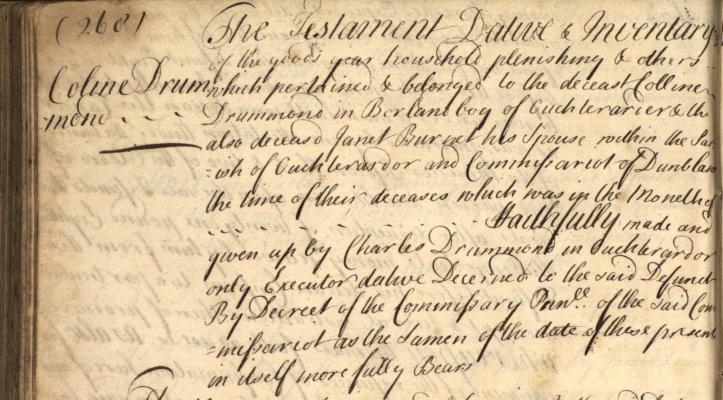 (268)
The Testament Dative & Inventary
of the goods gear household plenishing & others
Coline Drum
which pertained & belonged to the deceast Colline
-mond
Drummond in Borland bog of Ouchterarder & the
also deceasd Janet Burnet his Spouse within the Par
=ish of Ouchterardor and Commissariot of Dunblan
the time of their deceases which was in the Moneth of
Faithfully made and
given up by Charles Drummond in Ouchterardor
only Executor dative Decerned to the said Defunct
By Decreet of the Commissary of the said Com
=missariot as the samen of the date of these present
in itself more fully Bears